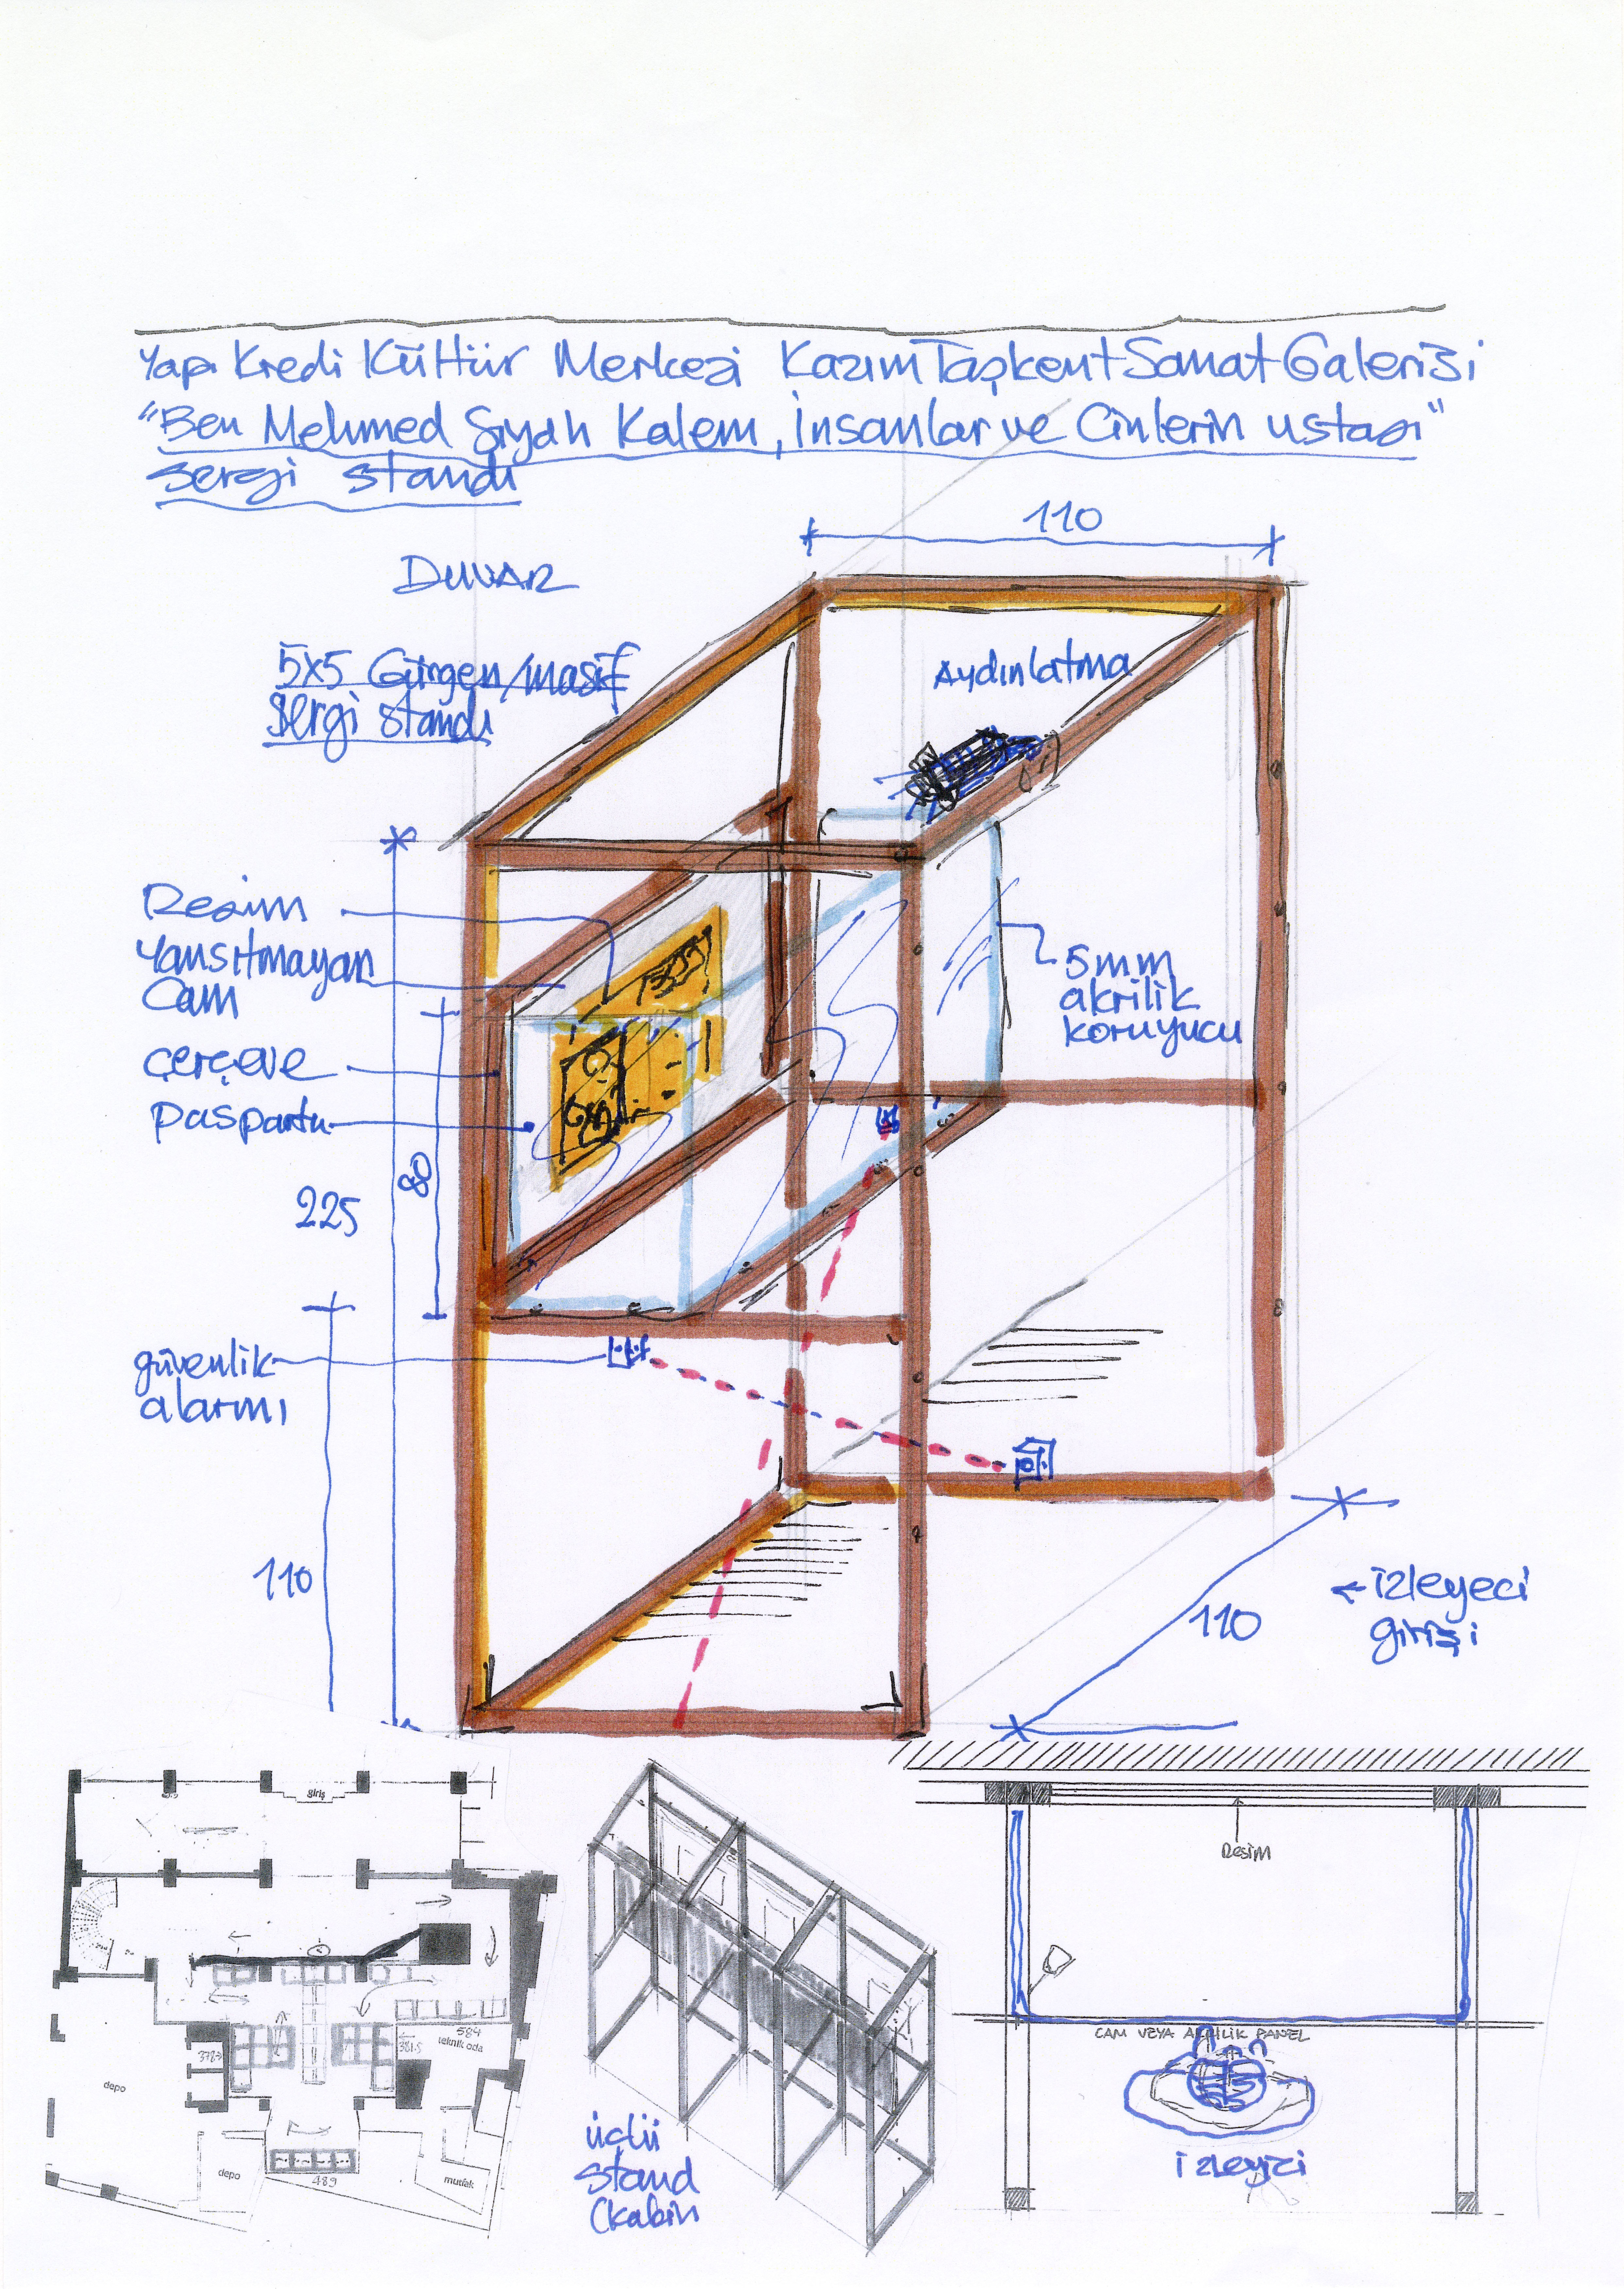 Yapı Kredi Kültür Merkezi Kazım Taşkent Sanat Galerisi
"Ben Mehmed Siyah Kalem, İnsanlar ve Cinlerin ustası"
sergi standı
110
DUVAR
5x5 Gürgen/masif
Sergi standı
Aydınlatma
Resim
Yansıtmayan
Cam
çerçeve
paspartu
5mm
akrilik
koruyucu
80
225
güvenlik
alarmı
110
110
← izleyeci
girişi
giriş
584
teknik oda
381.5
378
depo
depo
489
mutfak
üçlü
stand
(kabin
Resim
CAM VEYA AKRİLİK PANEL
izleyici